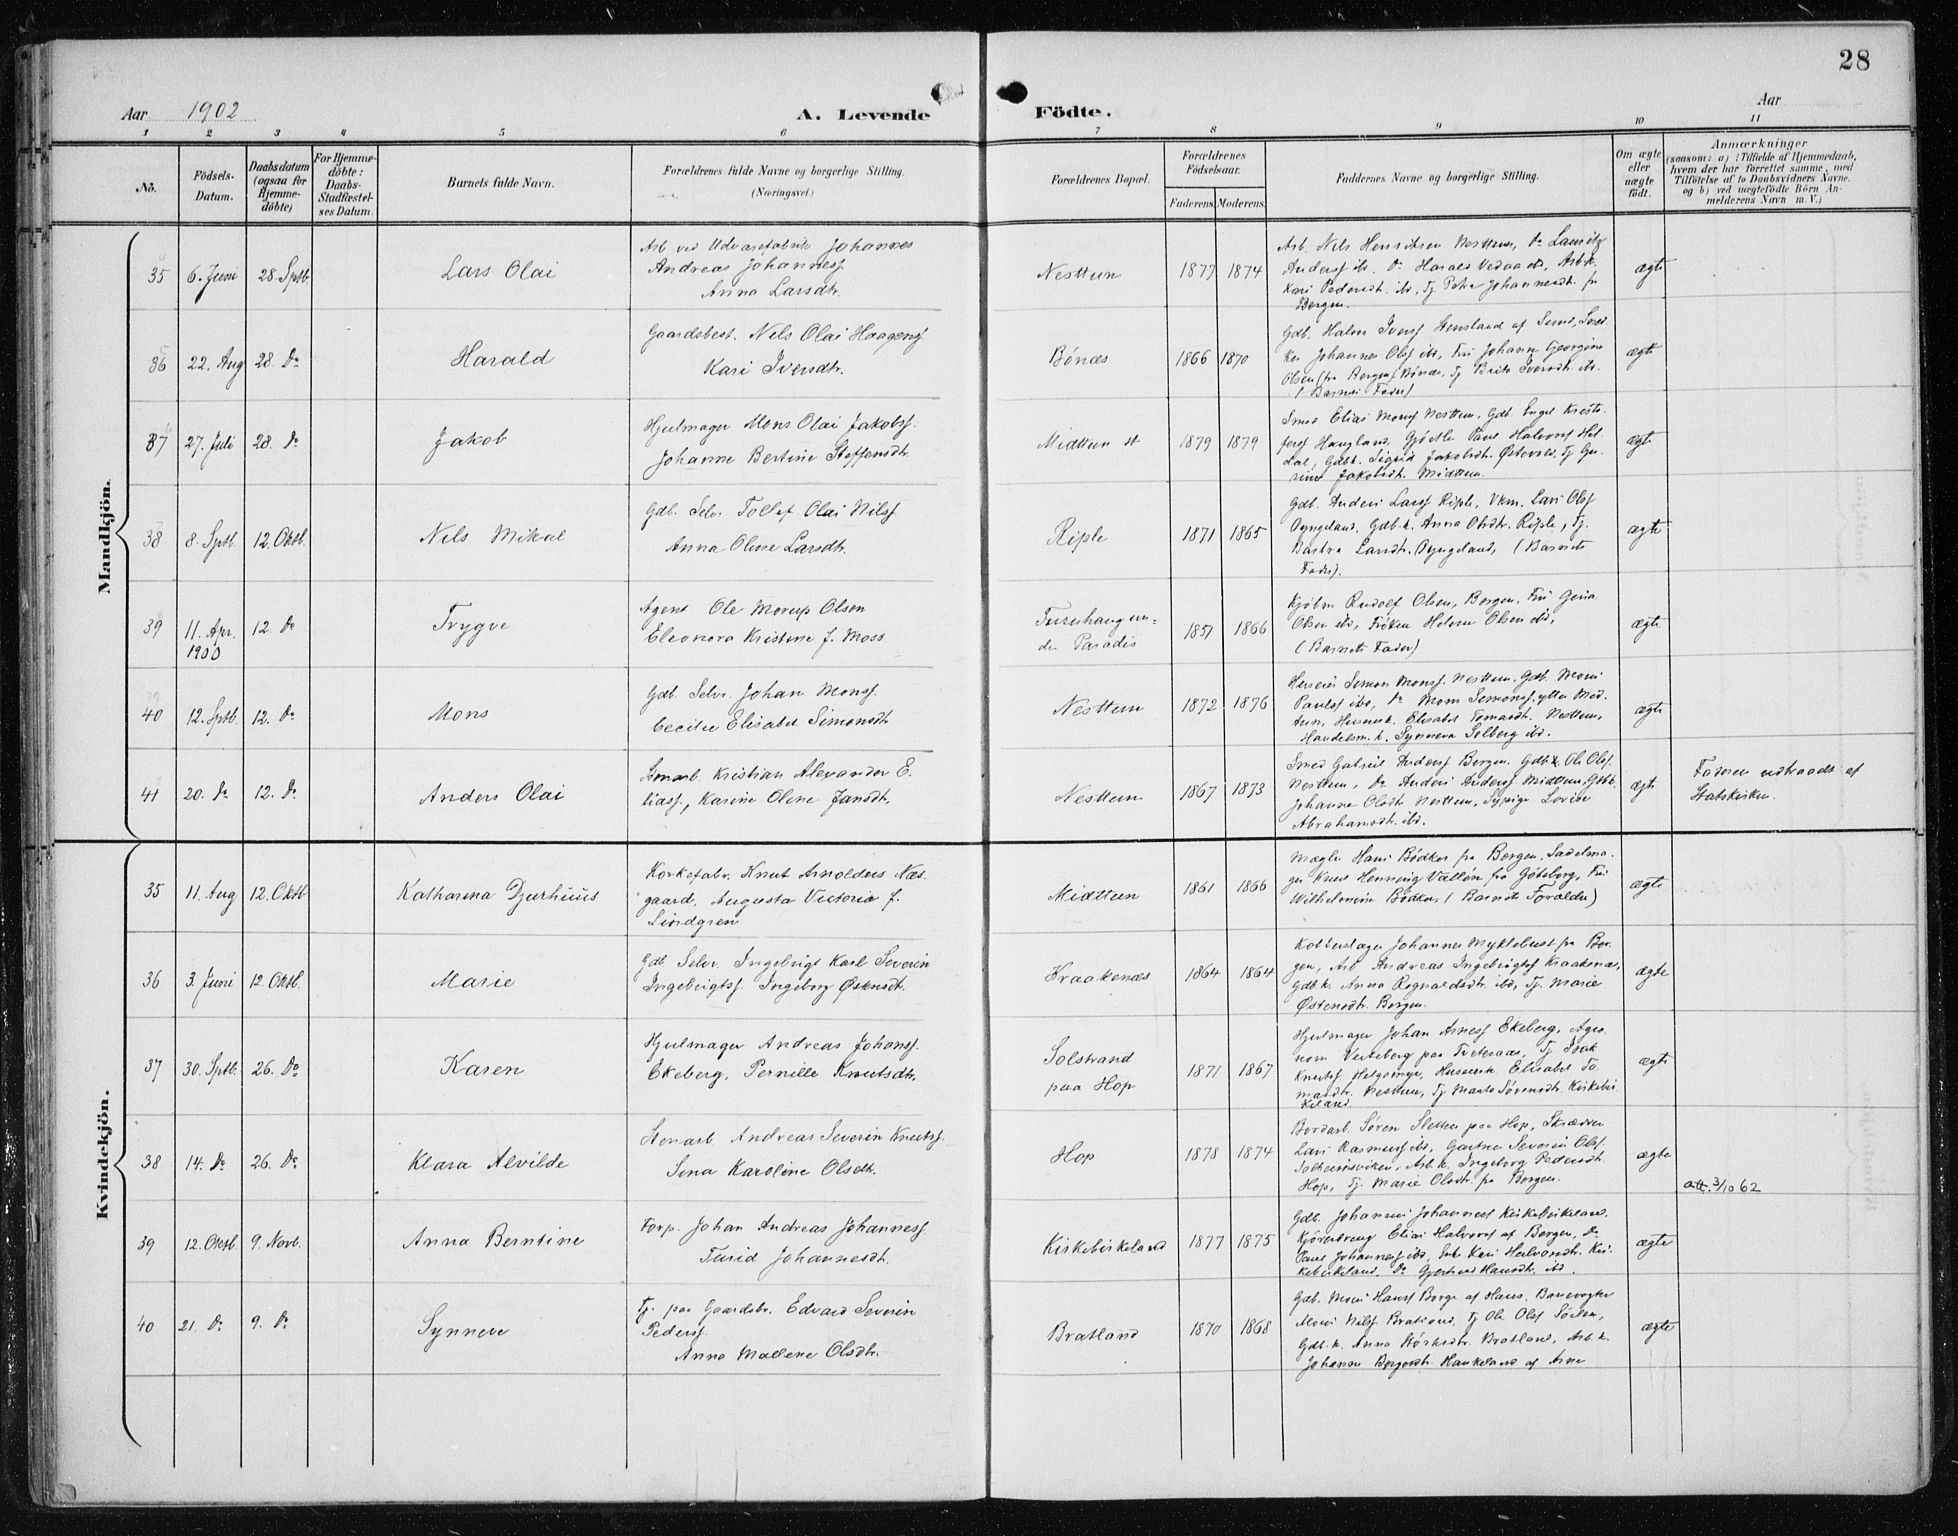 28
Aar 1902
A. Levende
Födte.
Aar
1 2 3 4 5 6 7 8 9 10 11
No.
Födsels-Datum.
Daabsdatum (ogsaa for Hjemme-döbte)
For Hjemme-döbte: Daabs-Stadfæstel-ses Datum.
Barnets fulde Navn.
Forældrenes fulde Navne og borgerlige Stilling.
(Næringsvei.)
Forældrenes Bopæl.
Forældrenes Födselsaar.
Faderens. Moderens.
Faddernes Navne og borgerlige Stilling.
Om ægte eller uægte födt.
Anmærkninger
(saasom: a) i Tilfælde af Hjemmedaab,
hvem der har forrettet samme, med
Tilföielse af to Daabsvidners Navne,
og b) ved uægtefödte Börn An-
melderens Navn m. V.)
Mandkjön.
35 6. Juni 28. Sptb. Lars Olai
Arb. ved Uldvarefabrik Johannes
Andreas Johannesf.
Anna Larsdtr.
Nesttun 1877 1874
Arb. Nils Henriksen Nesttun, Do Lauritz
Andersf ibd. Do Harald Vedaa ibd, Arb.k.
Kari Pedersdt. ibd, Tj. Petra Johannesdt. fr
Bergen.
ægte
36 22. Aug 28. Do Harald
Gaardsbest. Nils Olai Haagensf
Kari Iversdtr.
Bönæs 1866 1870
Gdb. Halvor Iversf Stensland af Sund, Sned
ker Johannes Olsf ibd, Fru Johanne Georgine
Olsen (fra Bergen) Bönæs, Tj Brita Iversdt. ibd.
(Barnets Fader)
ægte
37 27. Juli 28. Do Jakob
Hjulmager Mons Olai Jakobsf.
Johanne Bertine Steffensdtr.
Midttun 1879 1879
Smed Elias Monsf Nesttun, Gdb. Engel Kristo
fersf Haugland, Paul Halvorsf Hel
dal, Gdbk. Sigrid Jakobsdt. Østevold, Tj Gu-
rine Jakobsdt. Midttun.
ægte
38 8. Sptb. 12. Oktb. Nils Mikal
Gdb. Selv. Tollef Olai Nilsf
Anna Oline Larsdtr.
Riple 1871 1865
Gdb. Anders Larsf Riple, Vkm. Lars Olsf
Öyngeland, Gdb.k. Anna Olsdt. Riple, Tj.
Barbra Larsdt. Öyngeland, (Barnets
Fader).
ægte
39 11. Apr. 1900 12. Do Trygve
Agent Ole Morup Olsen
Eleonora Kristine f. Moss
Furuhaug un-
der Paradis
1851 1866
Kjöbm Rudolf Olsen, Bergen, Fru Gina
Olsen ibd, Fröken Helene Olsen ibd,
(Barnets Fader)
ægte
40 12. Sptb. 12. Do Mons
Gdb. Selv. Johan Monsf.
Cecilie Elisabet Simonsdt
Nesttun 1872 1876
Huseier Simon Monsf. Nesttun, Gdb. Mons
Paulsf ibd, Do Mons Simonsf. ytter Mid-
tun, Huseierk. Elisabet Tomasdt. Nesttun,
Handelsm.k. Synneva Solberg ibd.
ægte
41 20. Do 12. Do Anders Olai
Smarb. Kristian Alexander E.
liasf., Karine Oline Jansdtr.
Nesttun 1867 1873
Smed Gabriel Andersf Bergen, Gdbk. Ole Olsf.
Nesttun, Do Anders Andersf Midttun, Gdbk.
Johanne Olsdt Nesttun, Sypige Lovise
Abrahamsdt. ibd.
ægt
Faderen udtraadt af
Statskirken.
Kvindekjön.
35 11. Aug 12. Oktb Katharina Djurhuus
Korkefabr. Knut Arnoldus Næs.
gaard, Augusta Victoria f.
Lindgren
Midttun 1861 1866
Mægler Hans Bödker fra Bergen, Sadelma-
ger Knut Henning Vallén fra Göteborg, Fru
Wilhelmine Bödker, (Barnets Forældre)
ægte
36 3. Juni 12. Oktb. Marie
Gdb. Selv. Ingebrigt Karl Severin
Ingebrigtsf. Ingeborg Østensdtr.
Kraakenæs 1864 1864
Kobberslager Johannes Myklebust fra Ber-
gen, Arb. Andreas Ingebrigtsf Kraakenæs,
Gdbk. Anna Rognaldsdt. ibd, Tj. Marie
Østensdt. Bergen.
ægte
37 30. Sptb. 26. Do Karen
Hjulmager Andreas Johansf.
Ekeberg, Pernille Knutsdtr.
Solstrand
paa Hop
1871 1867
Hjulmager Johan Arnesf Ekeberg, Agro-
nom paa Tveteraas, Tj Isak
Knutsf Helgemyr, Huseierk. Elisabet To-
masdtr. Nesttun, Tj Marta Sörensdtr. Kirkebir
keland.
ægte
38 14. Do 26. Do Klara Alvilde
Stenarb Andreas Severin Knutsf.
Sina Karoline Olsdtr.
Hop 1878 1874
Bordarb. Sören Sletten paa Hop, Skrædder
Lars Rasmusf ibd, Gartner Severin Olsf.
Solheimsviken, Arb.k. Ingeborg Pedersdt.
Hop, Tj. Marie Olsdt. fr Bergen.
ægte
att. 3/10 62
39 12. Oktb. 9. Novb. Anna Berntine
Forp. Johan Andreas Johannesf
Turid Johannesdt.
Kirkebirkeland 1877 1875
Gdb. Johannes Johannesf Kirkebirkeland,
Kjöredreng Elias Halvorsf af Bergen, Do
Paul Johannesf ibd, Enke Kari Halvorsdt. Kir-
kebirkeland, Do Gjertrud Hansdt. ibd.
ægte
40 21. Do 9. Do Synneve
Tj. paa Gaardsbr. Edvard Severin
Pedersf
Anna Mallene Olsdtr.
Bratland 1870 1868
Gdb. Mons Hansf Borge af Haus, Banevogter
Mons Nilsf Bratland, Tj Ole Olsf Sörlen,
Gdb.k. Anna Bratland, Arb.k.
Johanne Haukeland af Arne
ægte